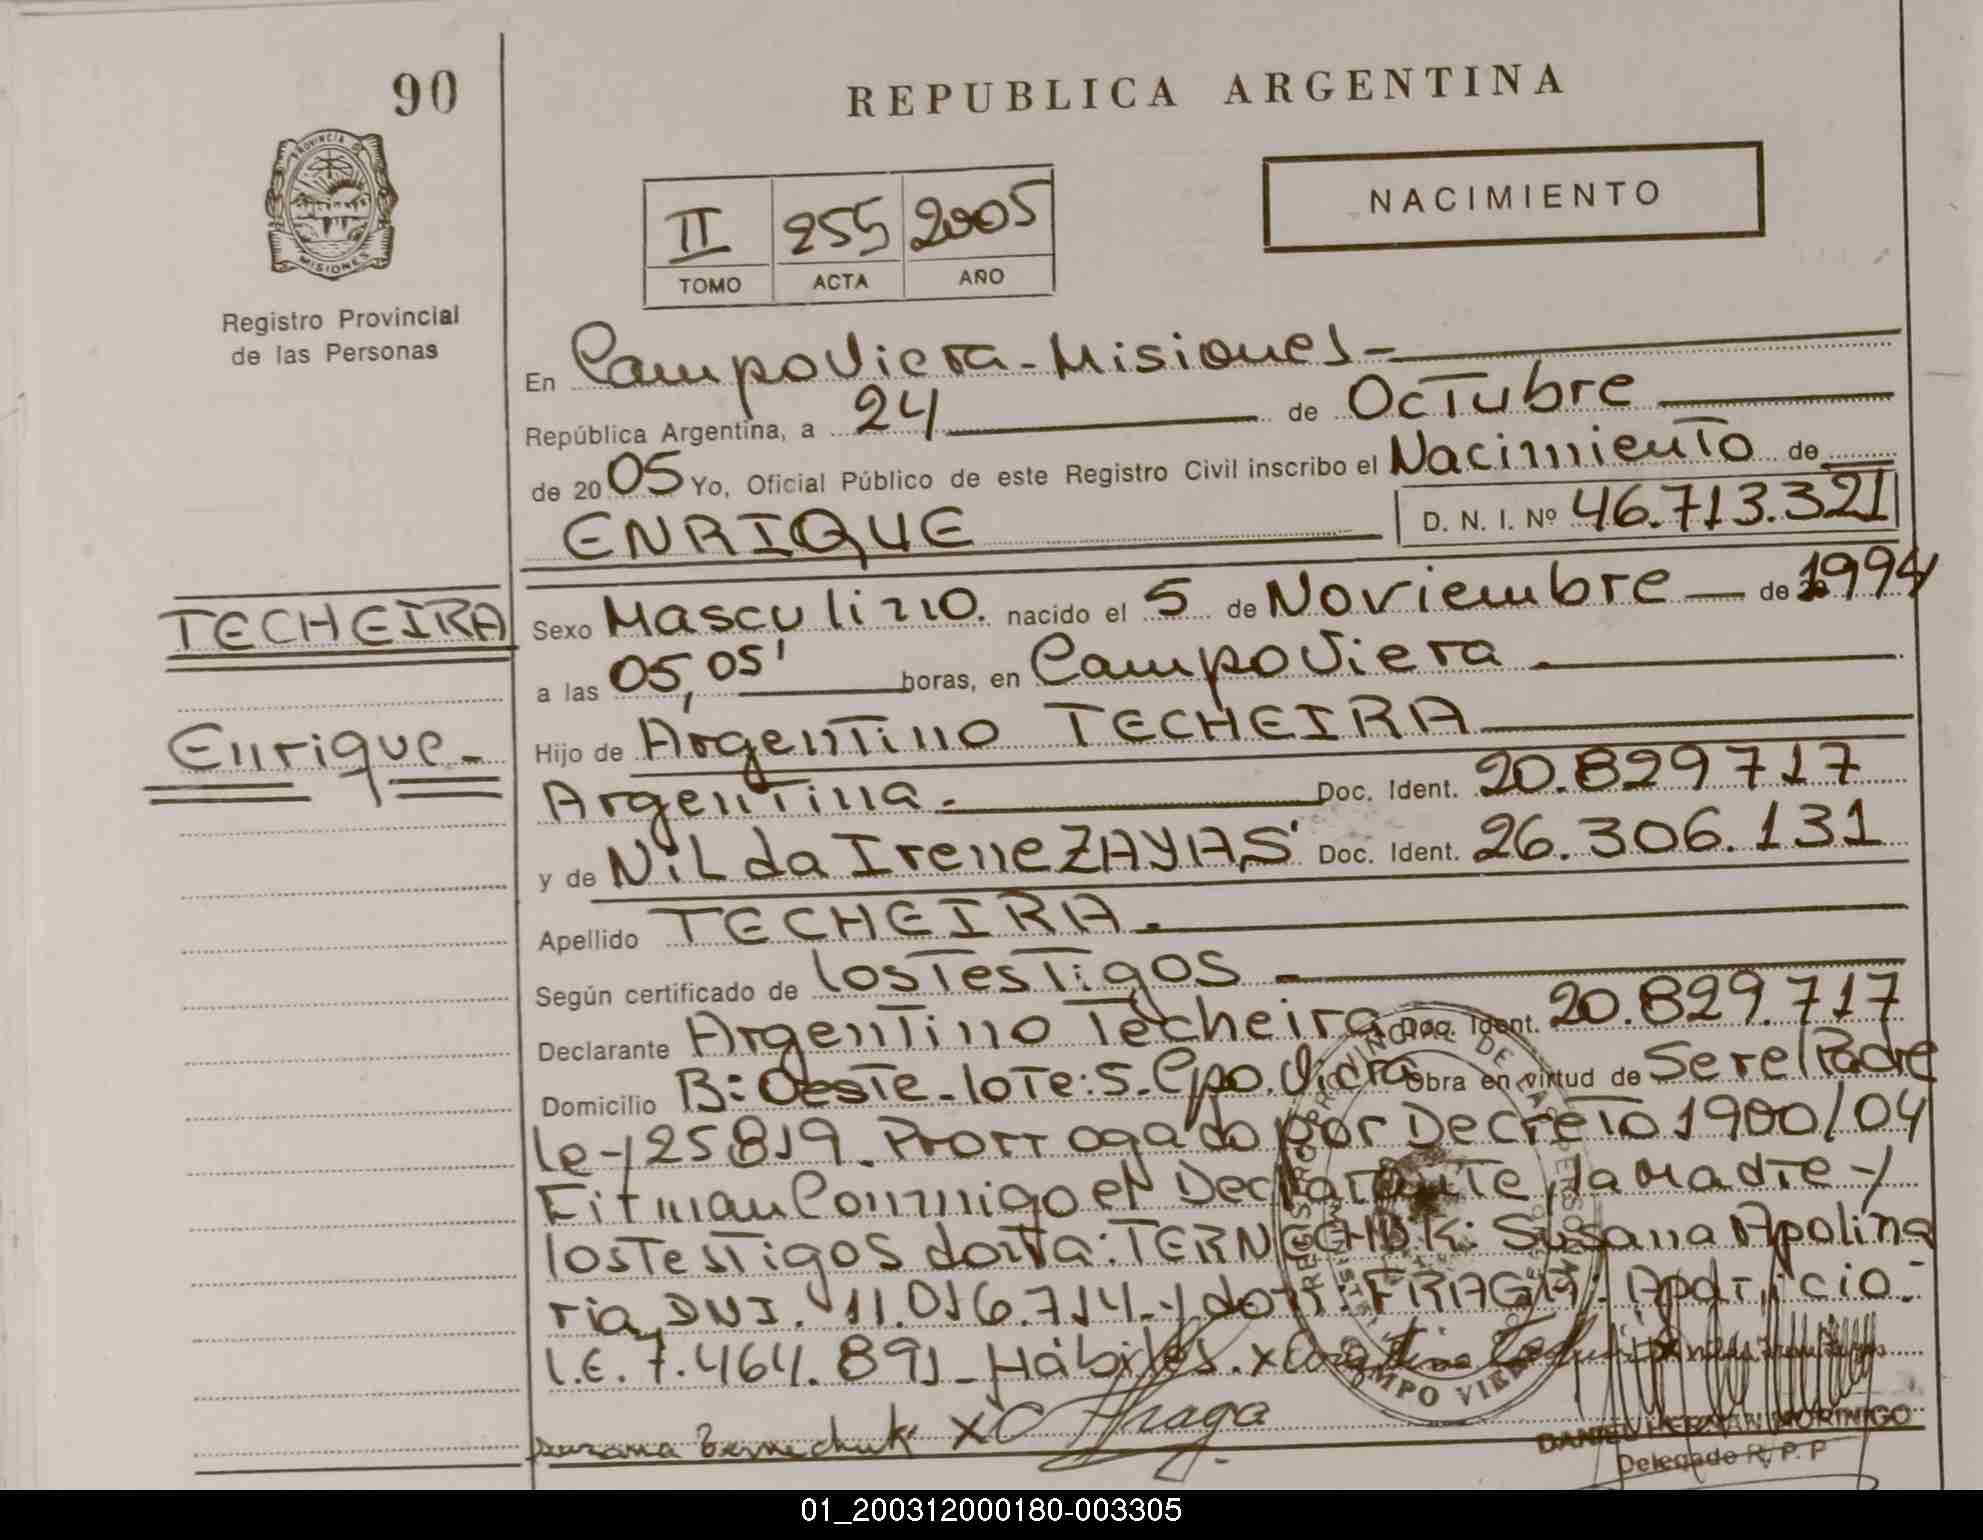 90
REPUBLICA ARGENTINA
PROVINCIA DE
MISIONES
Registro Provincial
de las Personas
II 255 2005
TOMO ACTA AÑO
NACIMIENTO
En Campo Viera - Misiones -
República Argentina, a 24 de Octubre
de 2005 Yo, Oficial Público de este Registro Civil inscribo el Nacimiento de
ENRIQUE D. N. I. Nº 46.713.321
TECHEIRA
Enrique -
Sexo Masculino. nacido el 5 de Noviembre de 1994
a las 05,05' horas, en Campo Viera
Hijo de Argentino TECHEIRA
Argentina. Doc. Ident. 20.829717
y de Nilda Irene ZAYAS Doc. Ident. 26.306.131
Apellido TECHEIRA.
Según certificado de los Testigos
Declarante Argentino Techeira Doc. Ident. 20.829.717
Domicilio B: Oeste - lote: 5. Cpo. Viera Obra en virtud de Ser el Padre
le-y 25819. Prorrogado por Decreto 1900/04
Firman Conmigo el Declarante, la Madre y
los Testigos doña: TERNECHUK: Susana Apolina
ria, DNI. 11.016.714. y don: FRAGA: Aparicio.
L.E. 7.464.891 - Hábiles. x
Susana Bernechuk X Fraga
REGISTRO PROVINCIAL DE LAS PERSONAS
CAMPO VIERA
DANIEL HERNAN MORINIGO
Delegado R. P. P
01_200312000180-003305